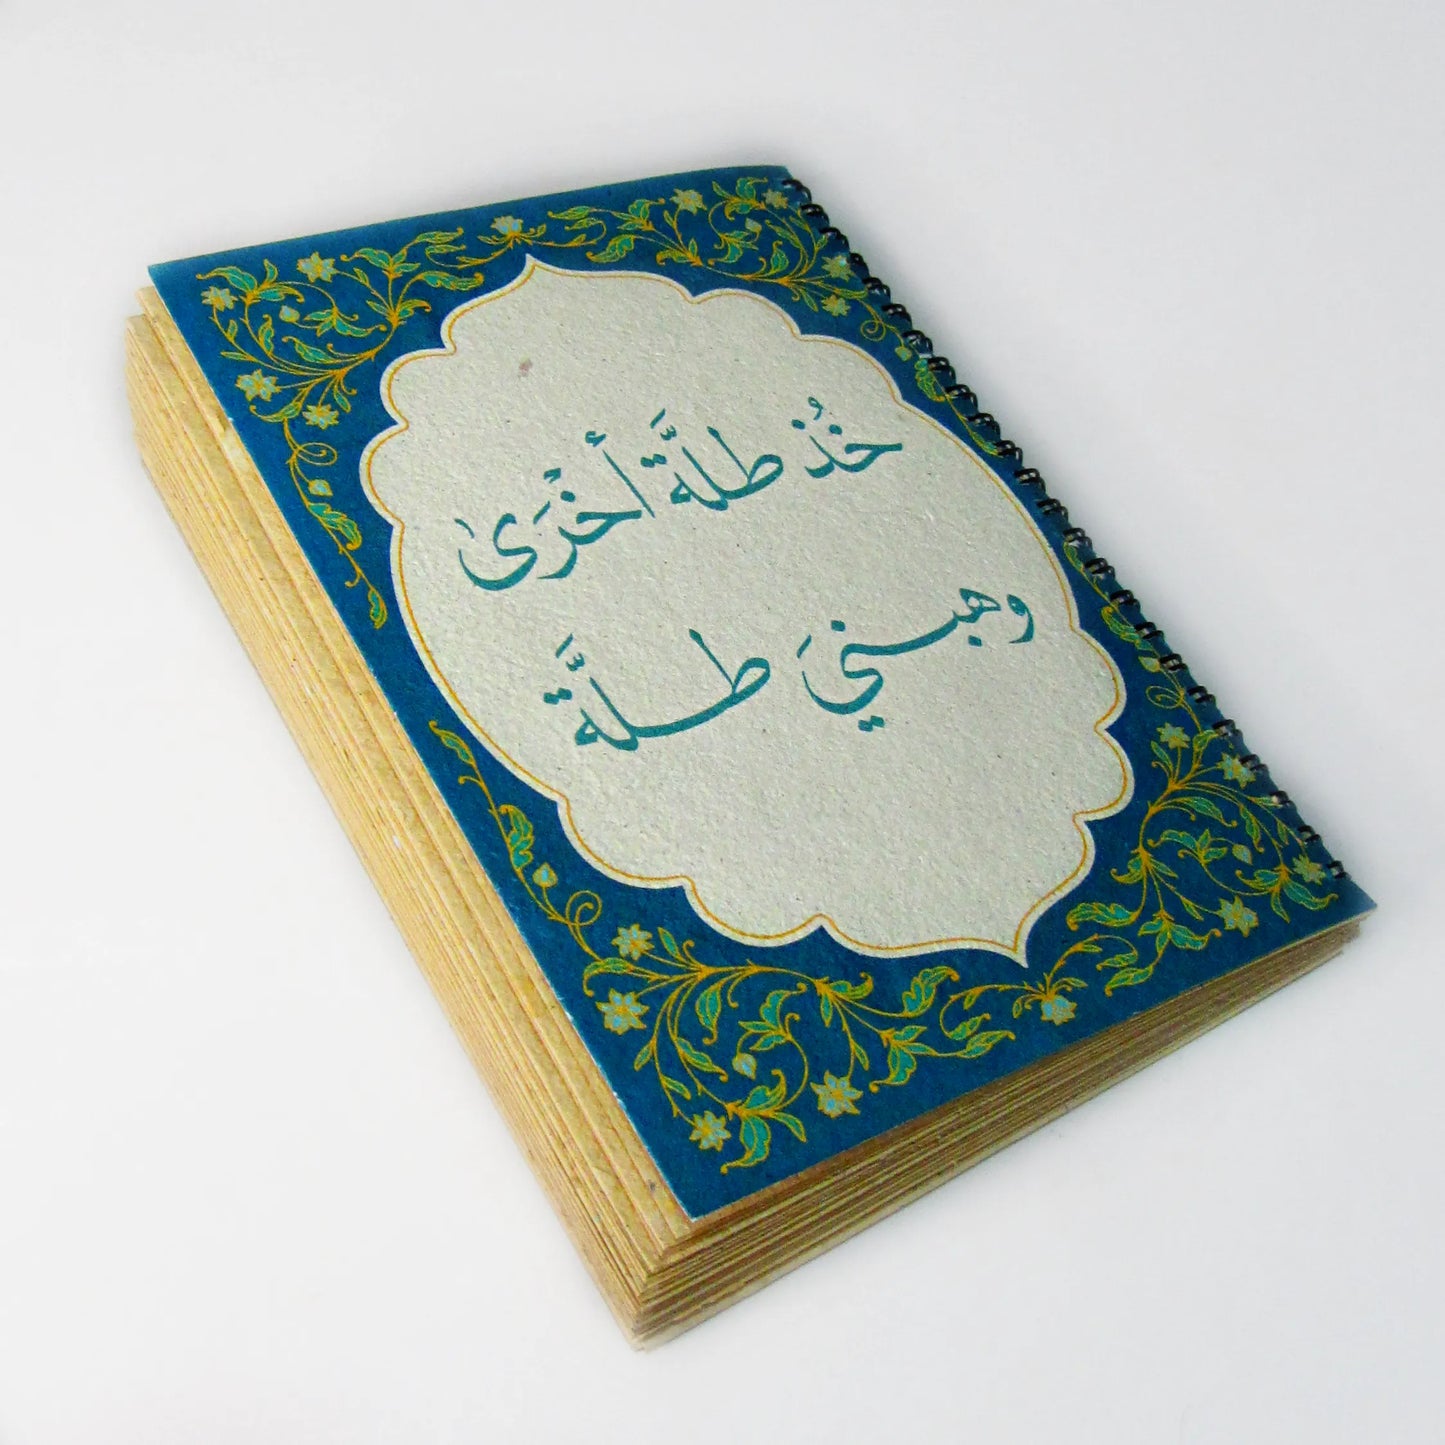 خُذ طلَّة أخْرَى
وهبنيَ طلَّة